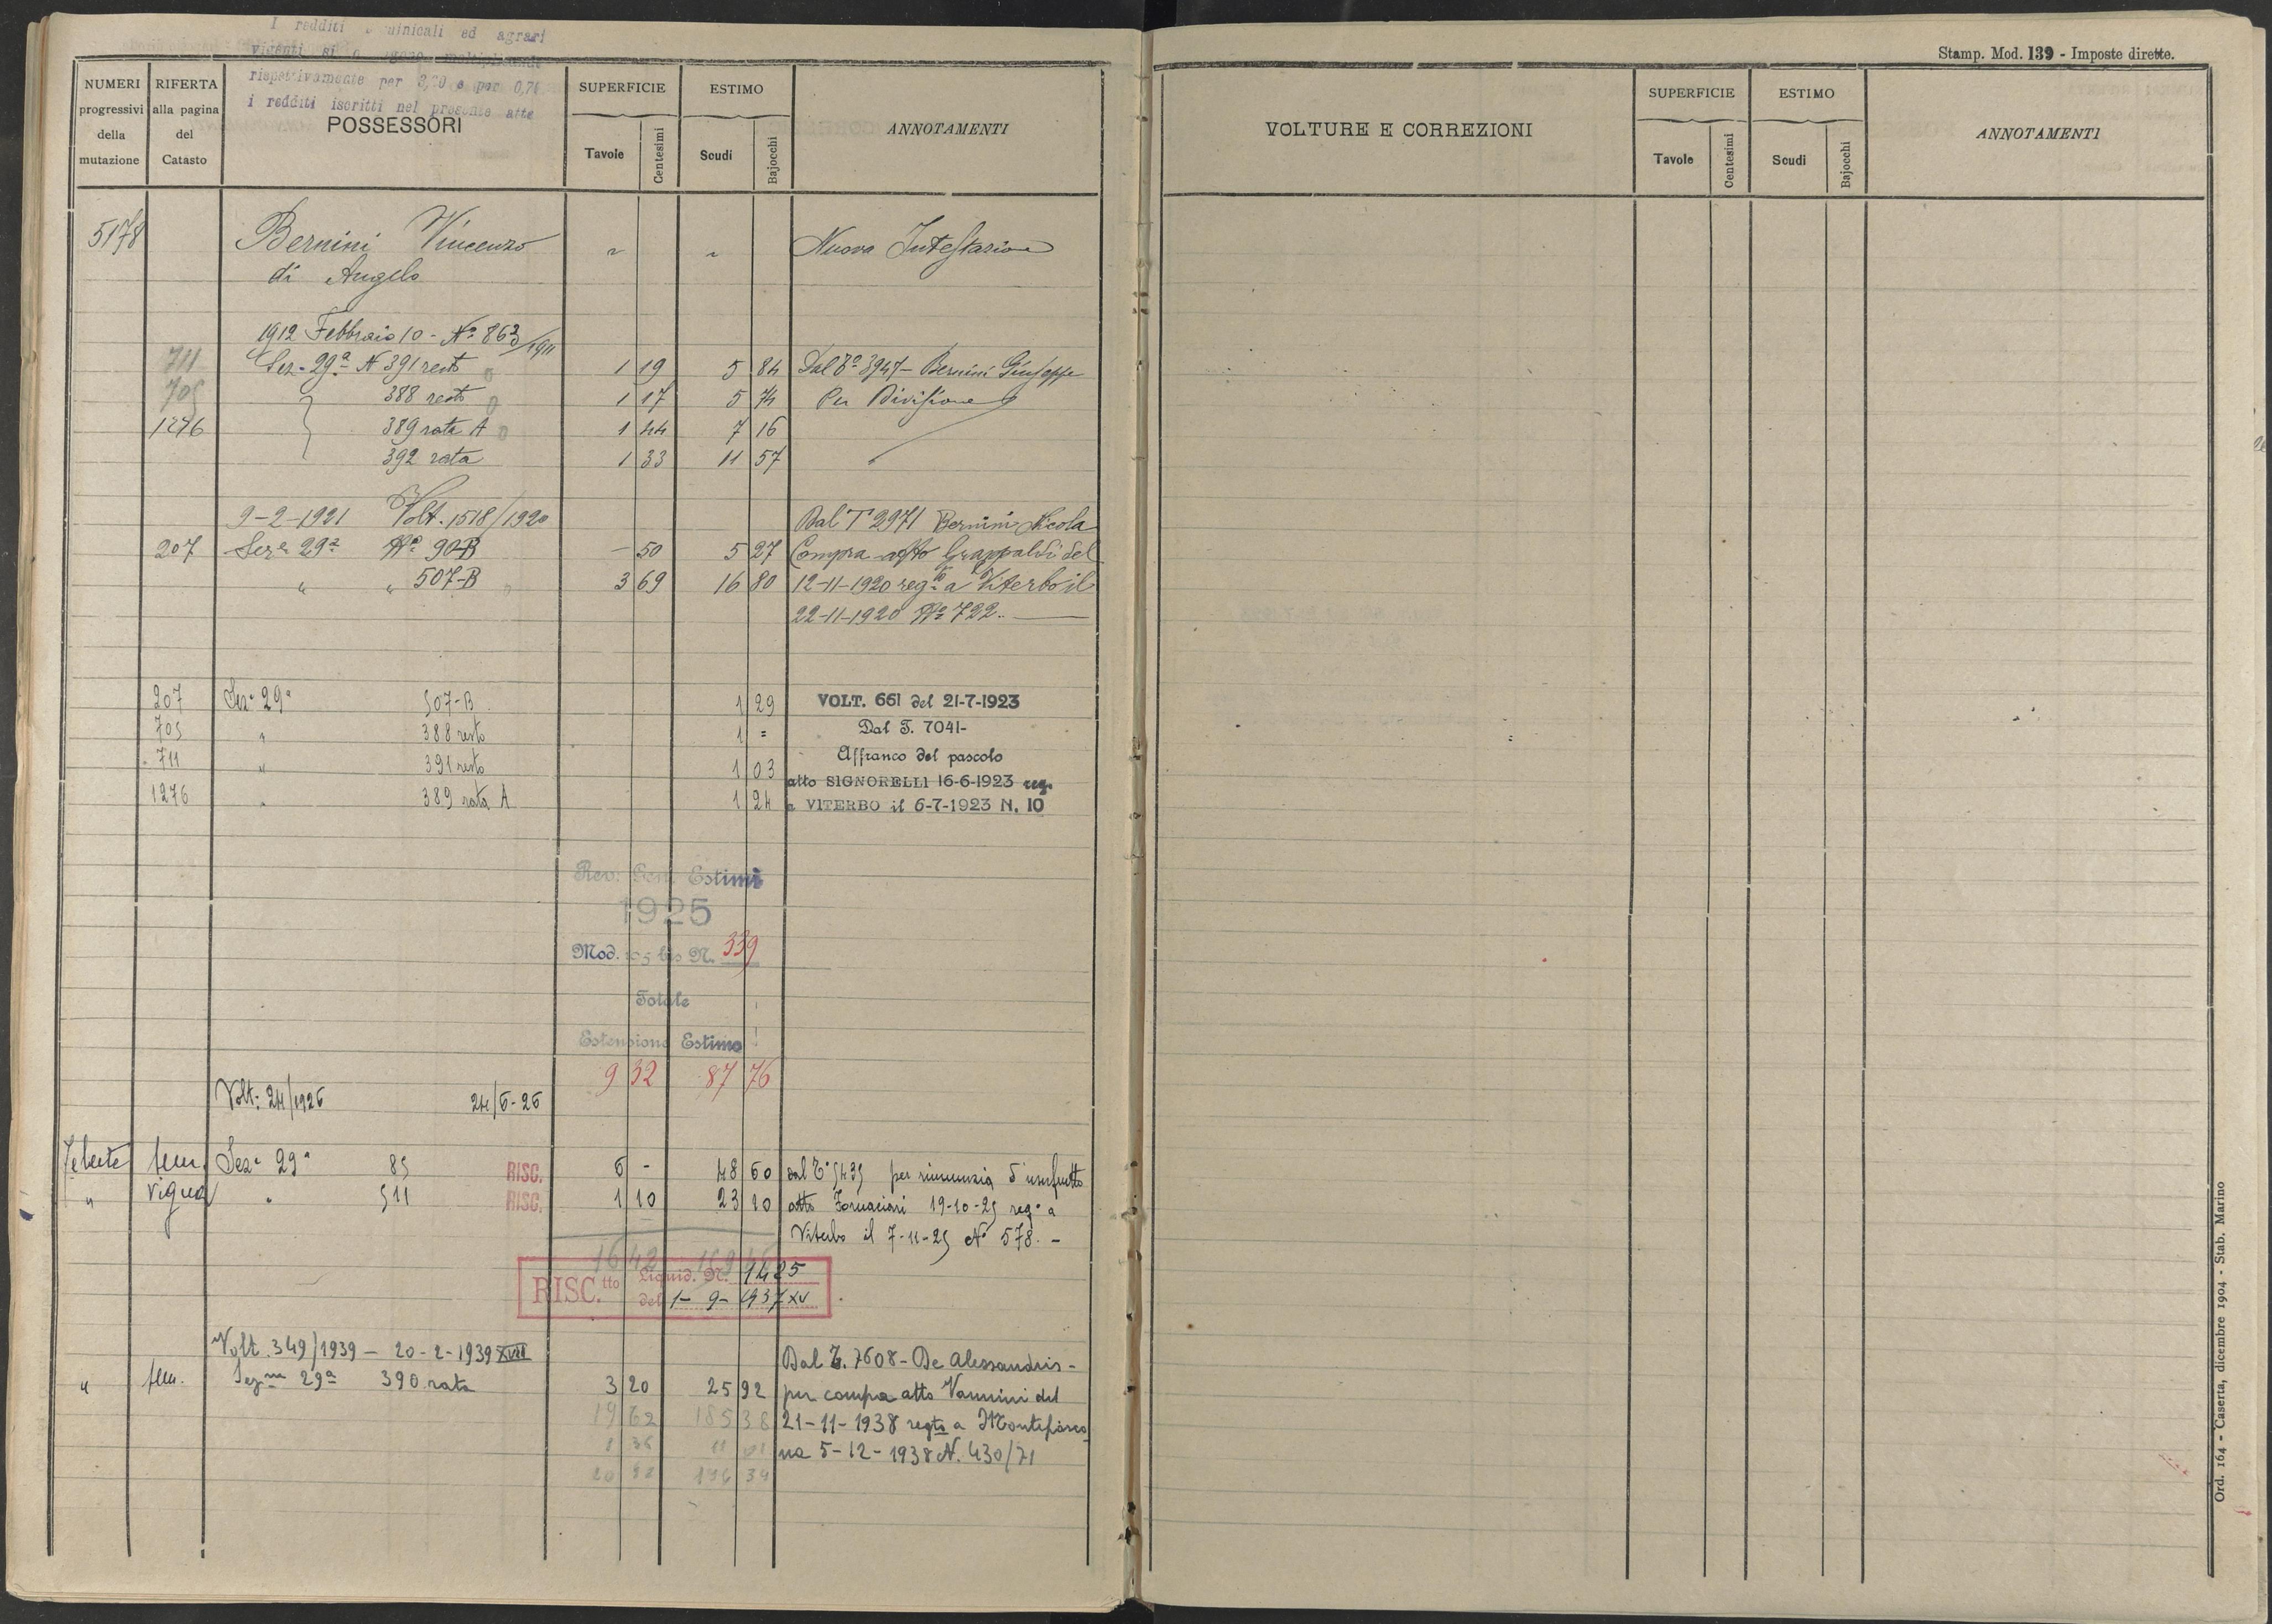 I redditi dominicali ed agrari
vigenti si
rispettivamente per e per 0,70
i redditi iscritti nel presente atto
NUMERI progressivi della mutazione
RIFERTA alla pagina del Catasto
POSSESSORI
SUPERFICIE
Tavole
Centesimi
ESTIMO
Scudi
Bajocchi
ANNOTAMENTI
5178 Bernini Vincenzo " " Nuova Intestazione
di Angelo
1912 Febbraio 10 - Nº 863/1911
711 Sez. 29ª N 391 resto 1 19 5 84 Dal Tº 3947 - Bernini Giuseppe
705 388 resto 1 17 5 74 Per Divisione
1276 389 rata A 1 44 7 16
392 rata 1 33 11 57
9-2-1921 Volt. 1518/1920 Dal T 2971 Bernini Nicola
207 Sezª 29ª Nº 90-B - 50 5 27 Compra atto Grappaldi del
" " 507-B 3 69 16 80 12-11-1920 regto a Viterbo il
22-11-1920 Nº 722.
207 Sezª 29ª 507-B 1 29 VOLT. 661 del 21-7-1923
705 " 388 resto 1 = Dal T. 7041-
711 " 391 resto 1 03 Affranco del pascolo
atto SIGNORELLI 16-6-1923 reg.
1276 " 389 rata A 1 24 a VITERBO il 6-7-1923 N. 10
Rev. Gen. Estimi
1925
Mod. 105 bis N. 339
Totale
Estensione Estimo
9 32 87 76
Volt: 24/1926 24/6-26
sem. Sezª 29ª 85 RISC. 6 - 48 60 dal Tº 5435 per rinunzia d'usufrutto
" vigna " 511 RISC. 1 10 23 10 atto Fornaciari 19-10-25 regº a
Viterbo il 7-11-25 Nº 578. -
16 42
RISC.tto Liquid. N. 1425
del 1-9-1937 XV
Volt. 349/1939 - 20-2-1939 XVII Dal T. 7608 - De Alessandris -
" sem. Sezne 29ª 390 rata 3 20 25 92 per compra atto Vannini del
19 62 185 38 21-11-1938 regto a Montefiasco
1 36 11 01 ne 5-12-1938 N. 430/71
196 39
Stamp. Mod. 139 - Imposte dirette.
VOLTURE E CORREZIONI
SUPERFICIE
Tavole
Centesimi
ESTIMO
Scudi
Bajocchi
ANNOTAMENTI
Ord. 164 - Caserta, dicembre 1904 - Stab. Marino